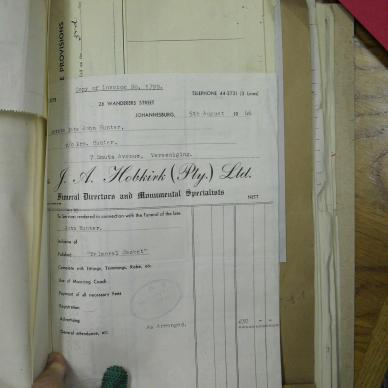 E PROVISIONS
Copy of Invoice No. 1799.
TELEPHONE 44-3731 (3 Lines)
26 WANDERERS STREET
JOHANNESBURG, 5th August 19 46
late John Hunter,
c/o Mrs. Hunter.
7 Smuts Avenue, Vereeniging.
J. A. Hobkirk (Pty.) Ltd.
Funeral Directors and Monumental Specialists
NETT
To Services rendered in connection with the Funeral of the late
John Hunter.
inclusive of
Polished "Balmoral Casket"
Complete with Fittings, Trimmings, Robe, etc.
Use of Mourning Coach
Payment of all necessary Fees
Registration
Advertising
As Arranged.
General attendance, etc.